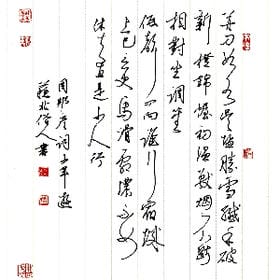 并刀如水吳鹽勝雪纖手破
新橙錦幄初溫獸烟不斷
相對坐調笙
低聲問向誰行宿城
上已三更馬滑霜濃不如
休去直是少人行
周邦彥詞少年遊
蘓北俗人書